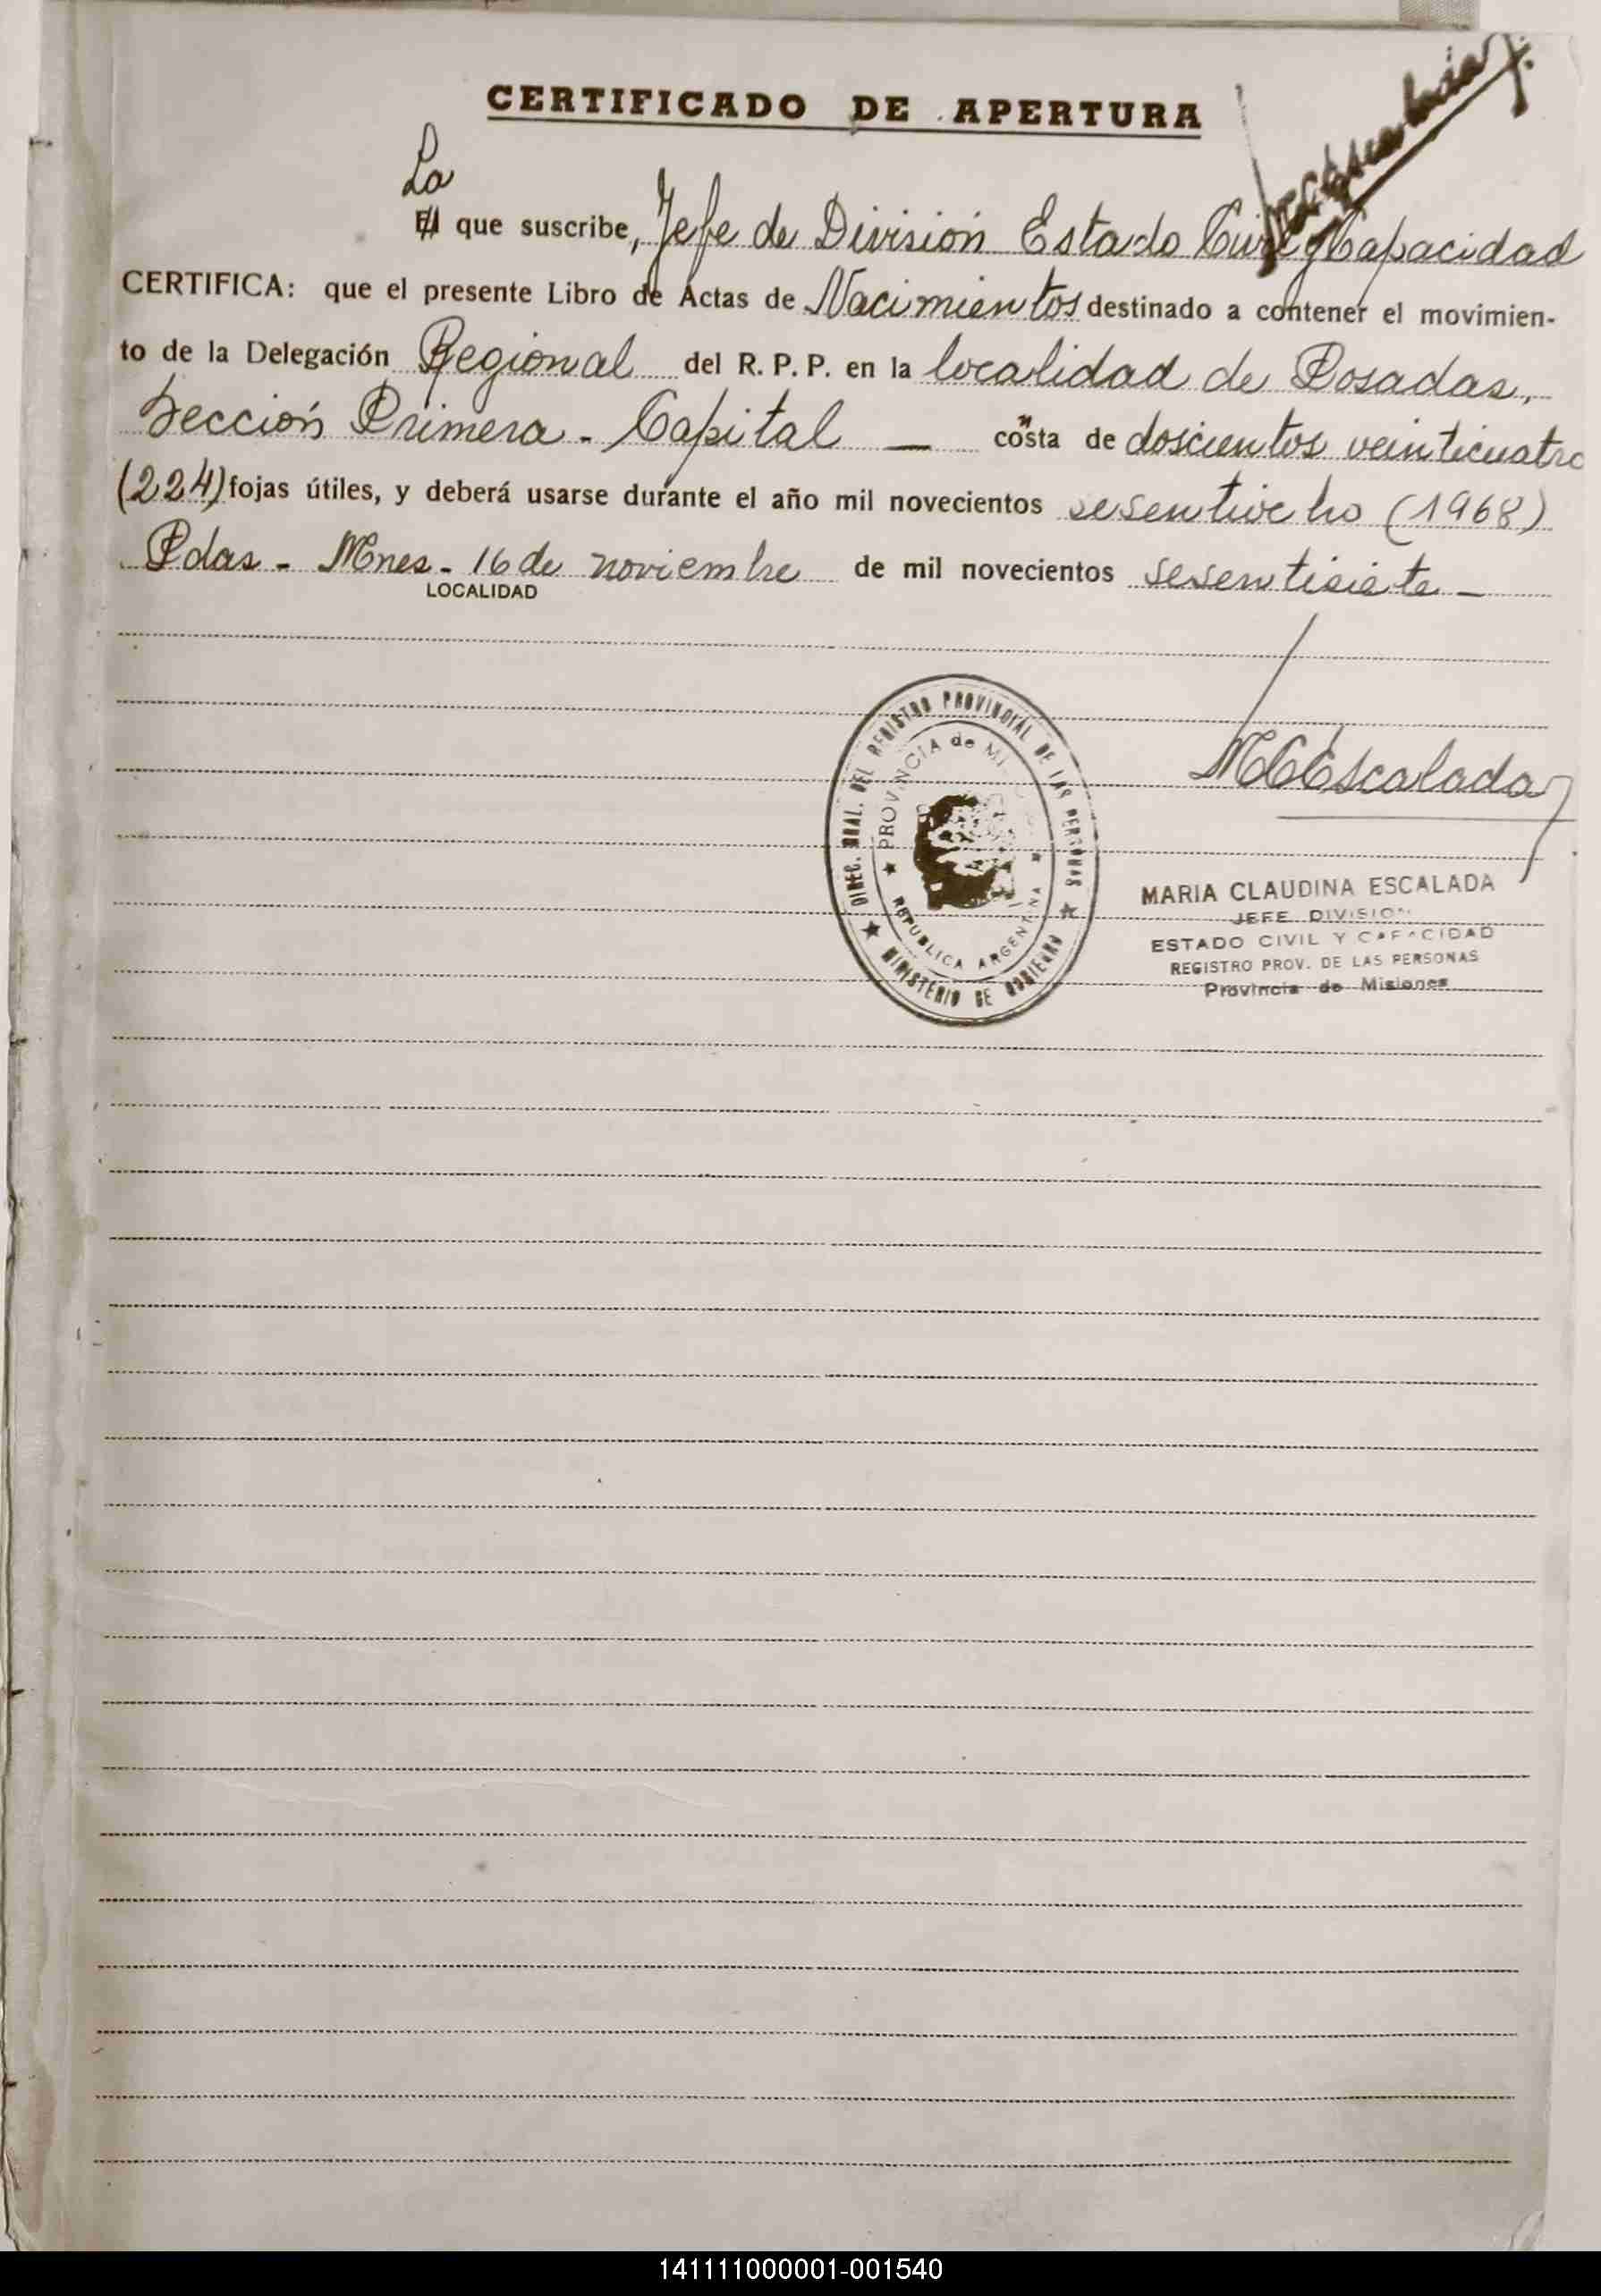 CERTIFICADO DE APERTURA
La
El que suscribe, Jefe de División Estado Civil y Capacidad
CERTIFICA: que el presente Libro de Actas de Nacimientos destinado a contener el movimien-
to de la Delegación Regional del R. P. P. en la localidad de Posadas,
Sección Primera - Capital — consta de doscientos veinticuatro
(224) fojas útiles, y deberá usarse durante el año mil novecientos sesentiocho (1968)
Pdas - Mnes - 16 de noviembre de mil novecientos sesentisiete -
LOCALIDAD
MCEscalada
DIREC. GRAL. DEL REGISTRO PROVINCIAL DE LAS PERSONAS
PROVINCIA de MI
REPUBLICA ARGENTINA
MINISTERIO DE GOBIERNO
MARIA CLAUDINA ESCALADA
JEFE DIVISION
ESTADO CIVIL Y CAPACIDAD
REGISTRO PROV. DE LAS PERSONAS
Provincia de Misiones
141111000001-001540